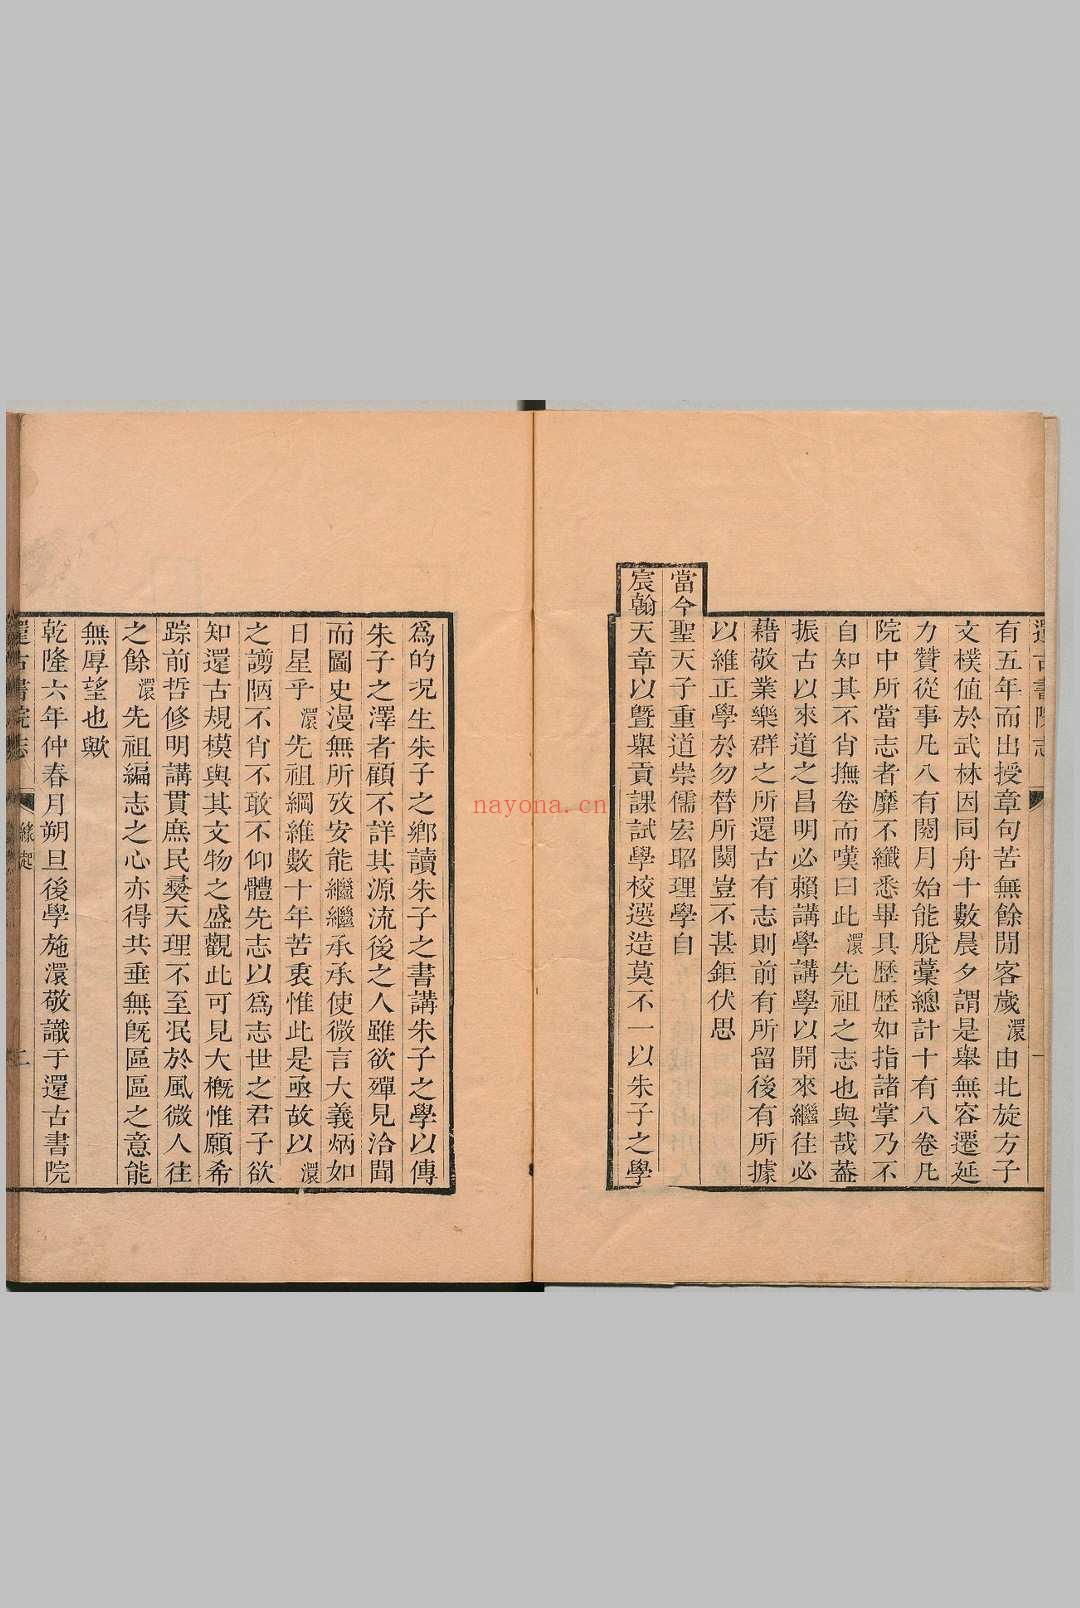 還古書院志
一
有五年而出授章句苦無餘閒客歲澴由北旋方子
文樸值於武林因同舟十數晨夕謂是舉無容遷延
力贊從事凡八有閱月始能脫藁總計十有八卷凡
院中所當志者靡不纖悉畢具歷歷如指諸掌乃不
自知其不肖撫卷而嘆曰此澴先祖之志也與哉蓋
振古以來道之昌明必賴講學講學以開來繼往必
藉敬業樂群之所還古有志則前有所留後有所據
以維正學於勿替所關豈不甚鉅伏思
當今聖天子重道崇儒宏昭理學自
宸翰天章以曁舉貢課試學校選造莫不一以朱子之學
爲的况生朱子之鄉讀朱子之書講朱子之學以傳
朱子之澤者顧不詳其源流後之人雖欲殫見洽聞
而圖史漫無所攷安能繼繼承承使微言大義炳如
日星乎澴先祖綱維數十年苦衷惟此是亟故以澴
之謭陋不肖不敢不仰體先志以為志世之君子欲
知還古規模與其文物之盛觀此可見大概惟願希
踪前哲修明講貫庶民彛天理不至冺於風微人往
之餘澴先祖編志之心亦得共垂無旣區區之意能
無厚望也歟
乾隆六年仲春月朔旦後學施澴敬識于還古書院
還古書院志
緣起
二
nayona.cn